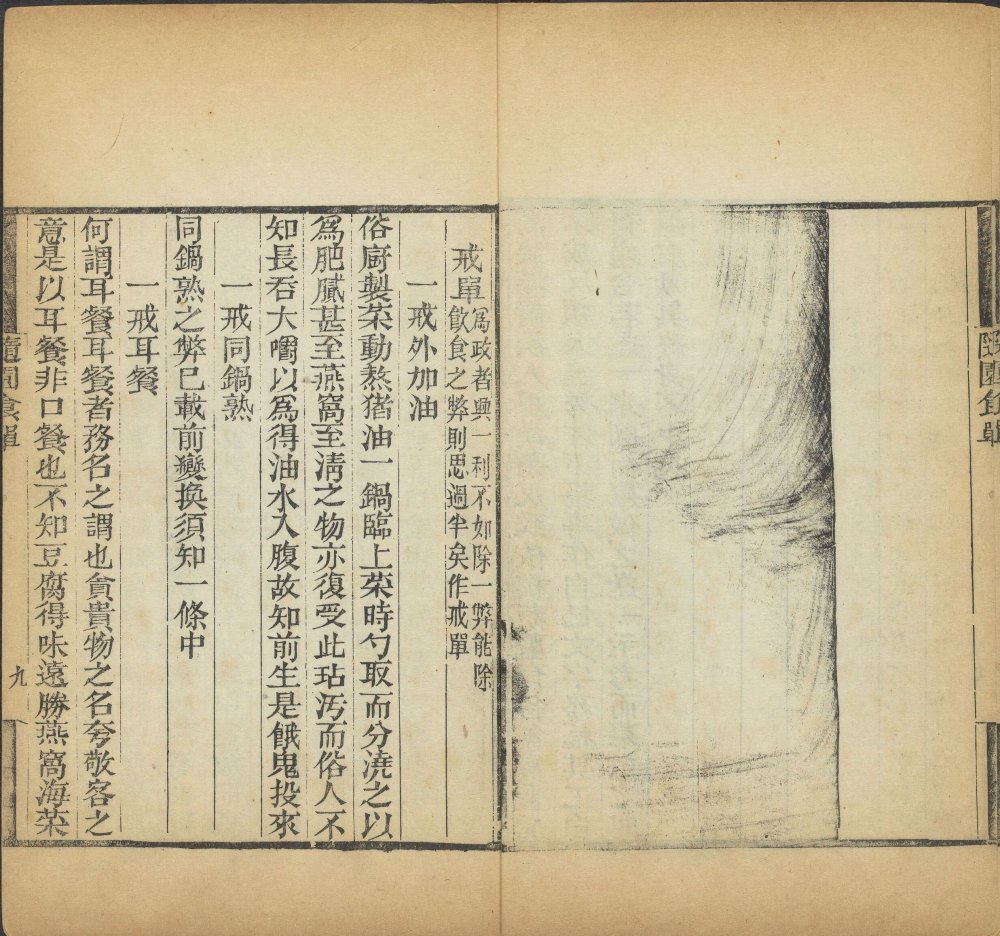 隨園食單
戒單
爲政者興一利不如除一弊能除
飲食之弊則思過半矣作戒單
一戒外加油
俗厨製菜動熬猪油一鍋臨上菜時勺取而分澆之以
爲肥膩甚至燕窩至淸之物亦復受此玷汚而俗人不
知長吞大嚼以爲得油水入腹故知前生是餓鬼投來
一戒同鍋熟
同鍋熟之弊已載前變換須知一條中
一戒耳餐
何謂耳餐耳餐者務名之謂也貪貴物之名夸敬客之
意是以耳餐非口餐也不知豆腐得味遠勝燕窩海菜
隨園食單
九